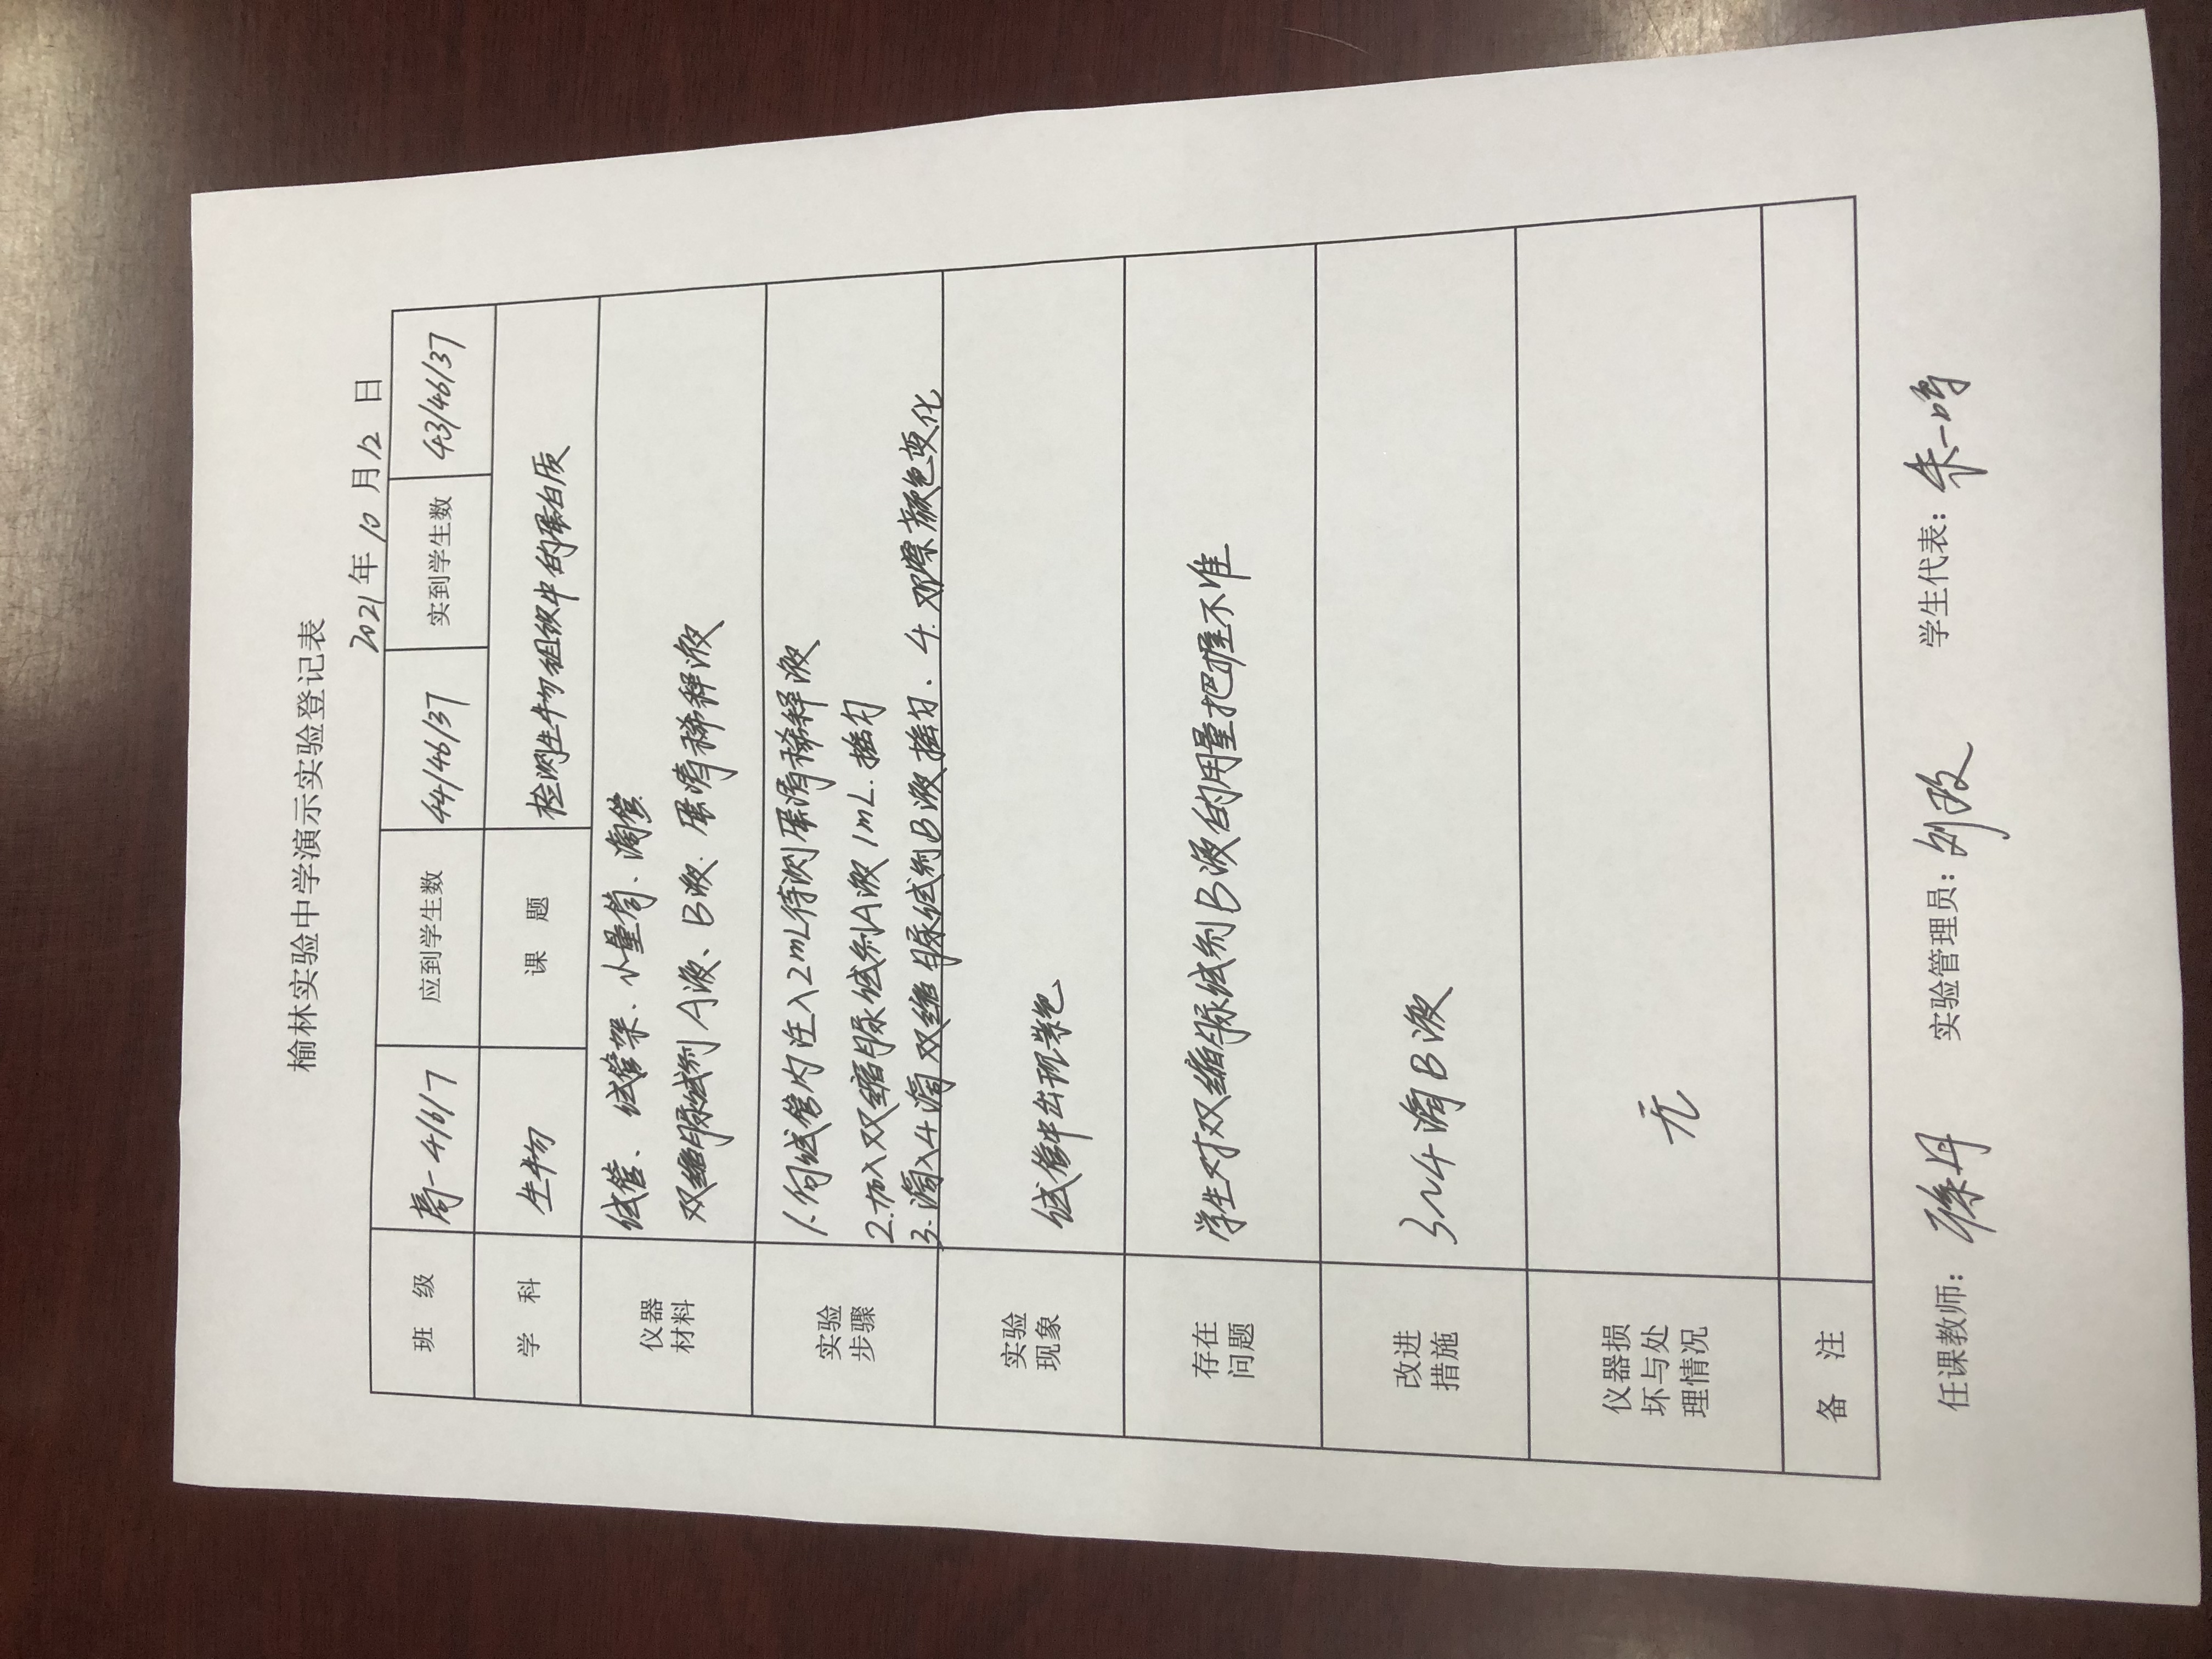 榆林实验中学演示实验登记表
2021年10月12日
班 级 高一4/6/7 应到学生数 44/46/37 实到学生数 43/46/37
学 科 生物 课 题 检测生物组织中的蛋白质
仪器
材料
试管、试管架、小量筒、滴管
双缩脲试剂A液、B液. 蛋清稀释液
实验
步骤
1.向试管内注入2mL待测蛋清稀释液
2.加入双缩脲试剂A液1mL.摇匀
3.滴入4滴双缩脲试剂B液摇匀. 4.观察颜色变化
实验
现象
试管中出现紫色
存在
问题
学生对双缩脲试剂B液的用量把握不准
改进
措施
3~4滴B液
仪器损
坏与处
理情况
无
备 注
任课教师: 实验管理员: 刘 学生代表: 朱一鸣